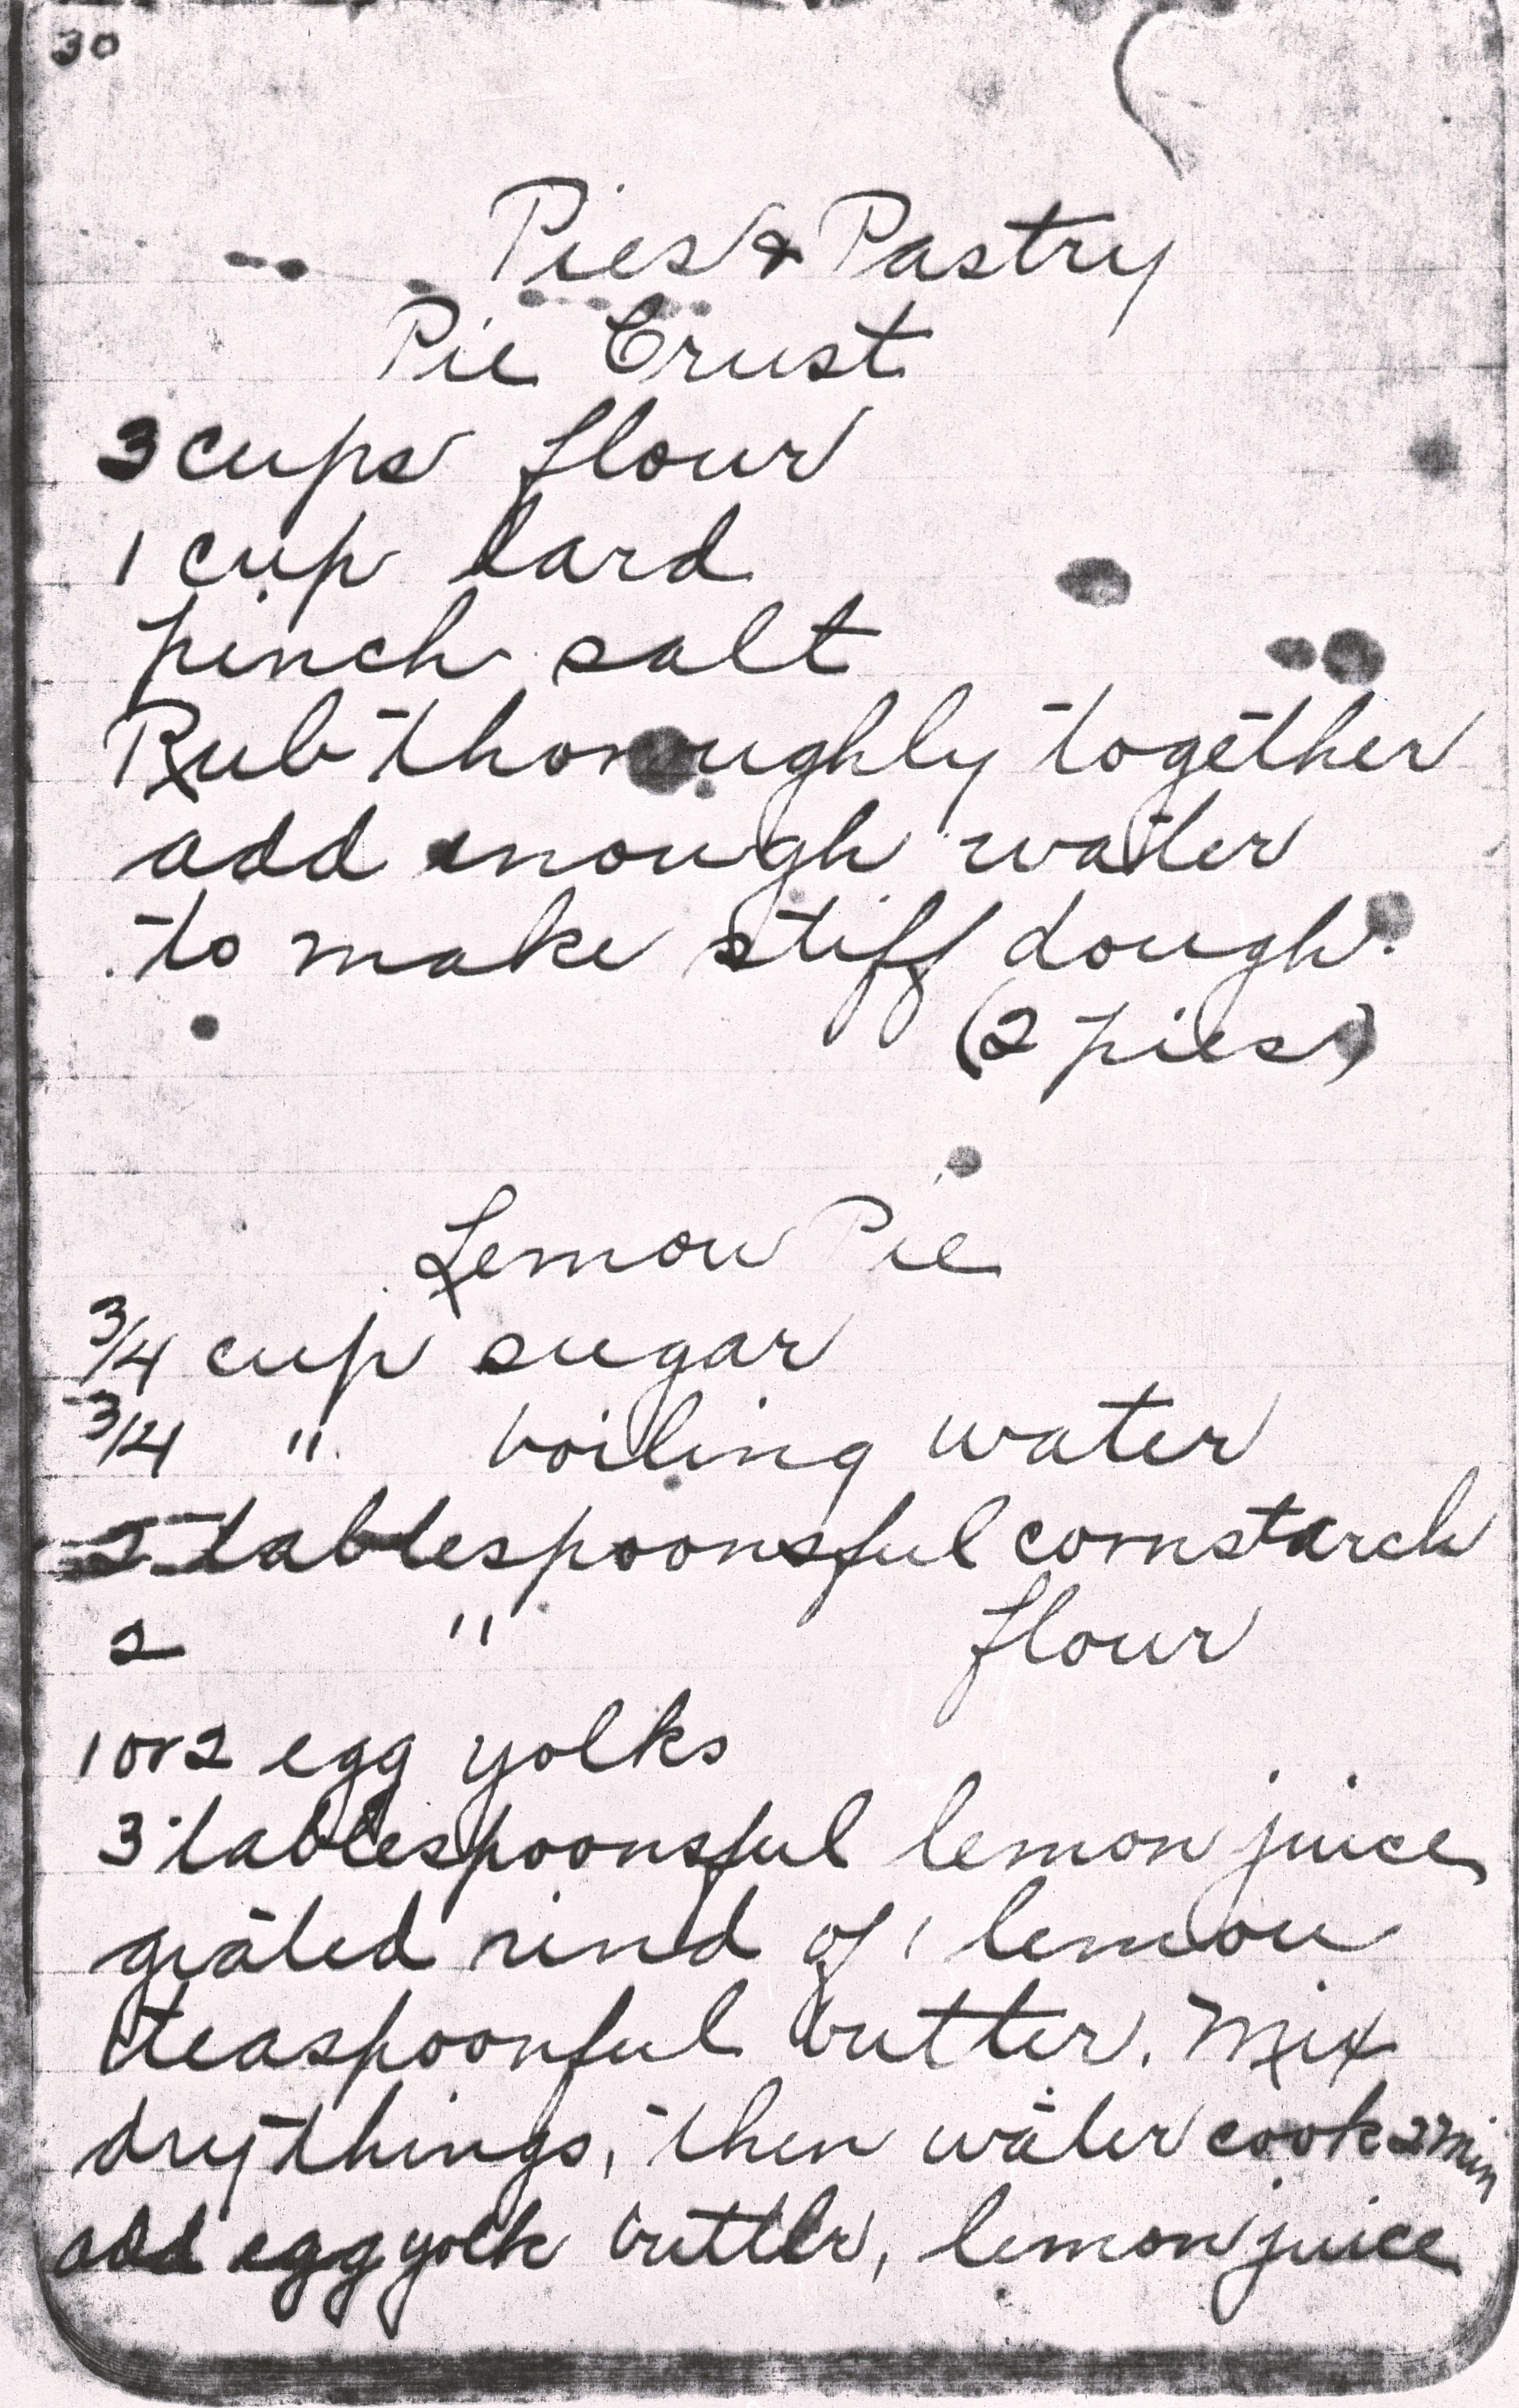 30
Pies & Pastry
Pie Crust
3 cups flour
1 cup lard
pinch salt
Rub thoroughly together
add enough water
to make stiff dough.
(2 pies)
Lemon Pie
3/4 cup sugar
3/4 " boiling water
2 tablespoonsful cornstarch
2 " flour
1 or 2 egg yolks
3 tablespoonsful lemon juice
grated rind of 1 lemon
1 teaspoonful butter. Mix
dry things, then water cook 2 min
add egg yolk butter, lemon juice